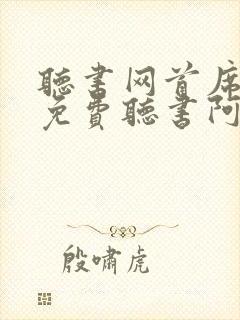 聽書网首席
免費聽書阿
殷嘯虎